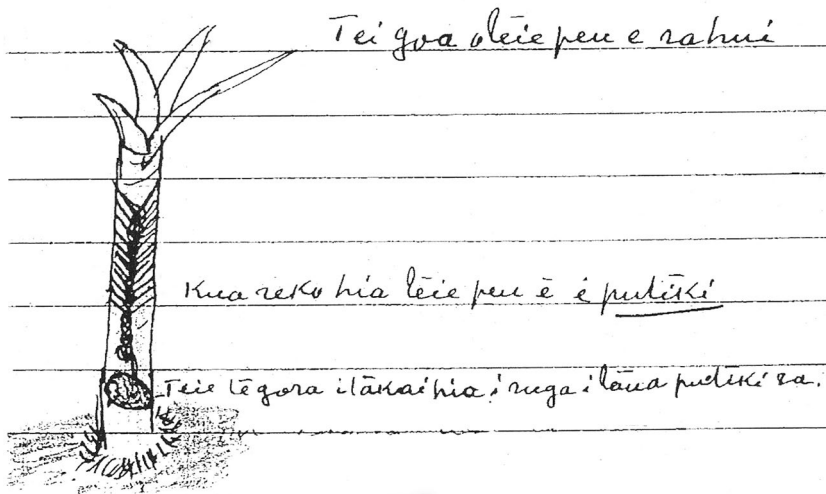 Tei goa o tēie peu e rahui
Kua reko hia tēie peu ē é putiki
Teie tēgora i tākai hia i ruga i tāua putiki ra.